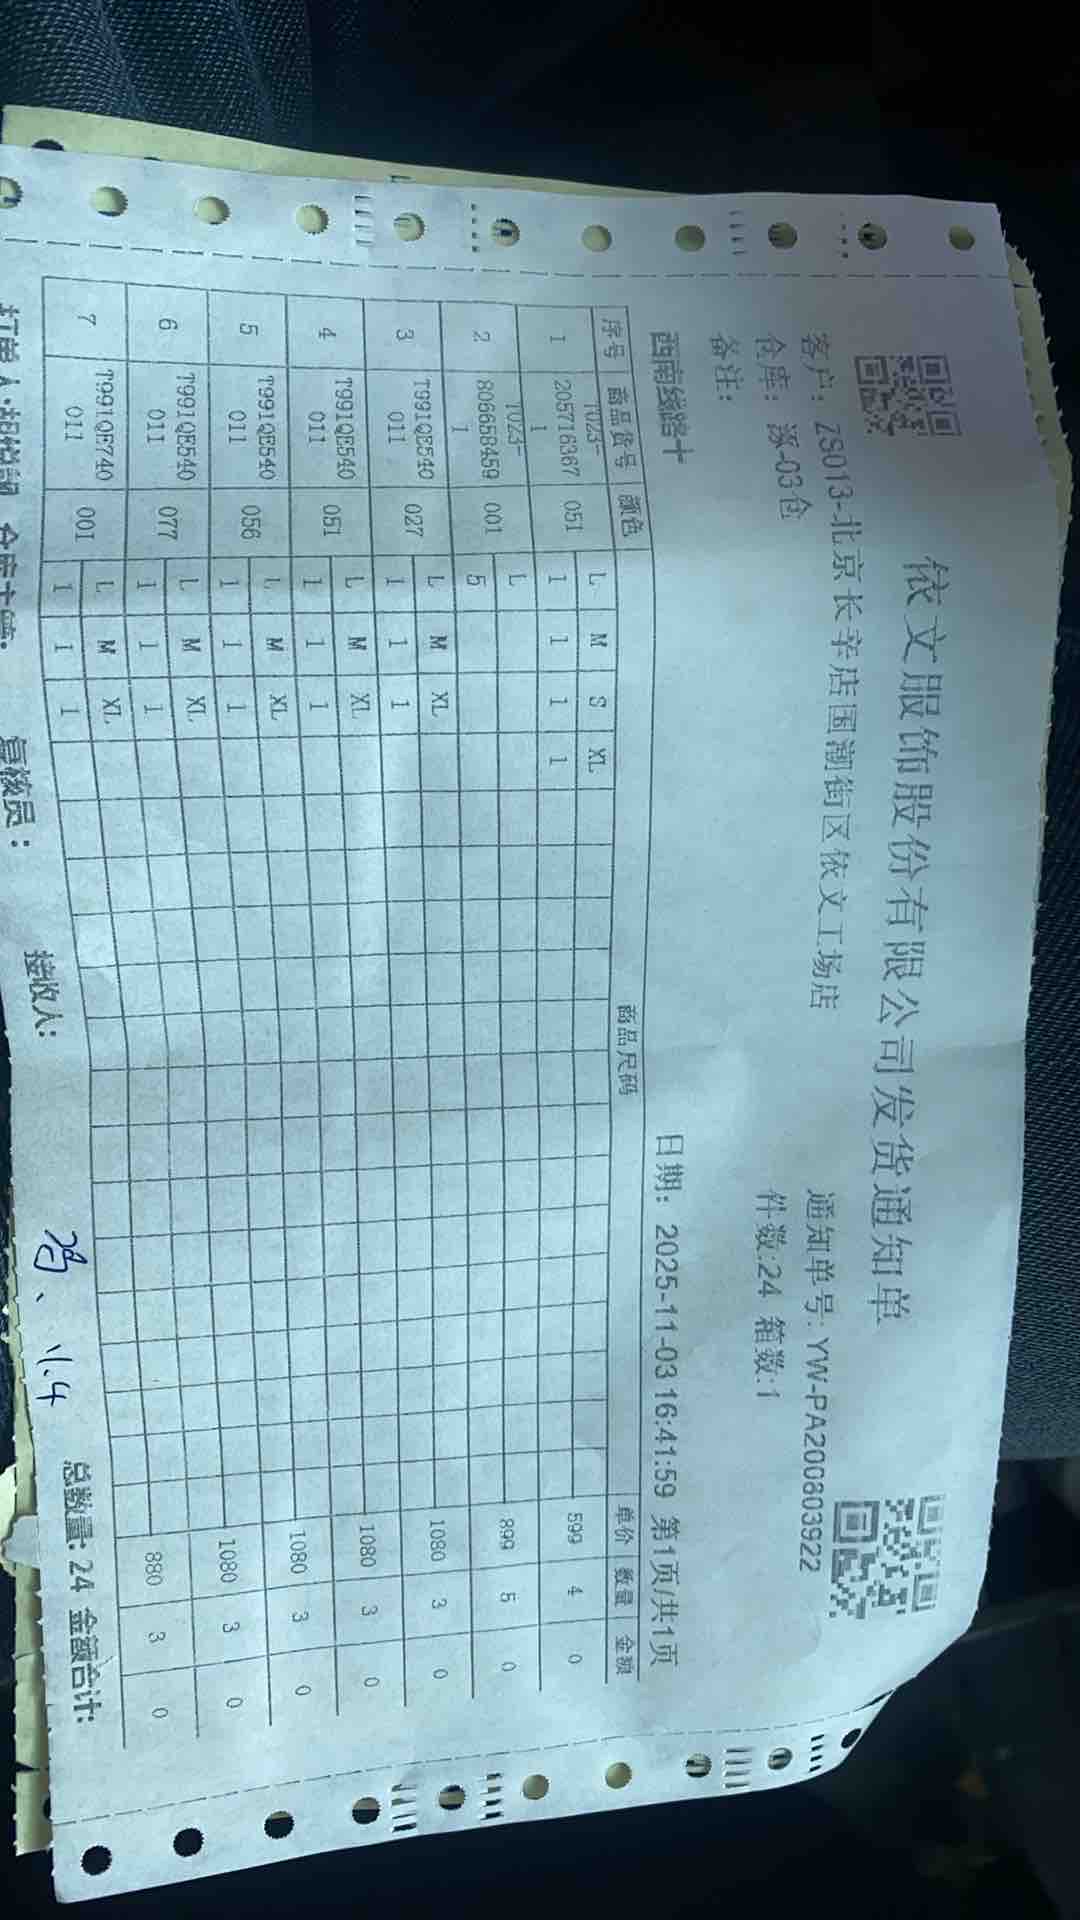 依文服饰股份有限公司发货通知单
客户: ZS013-北京长辛店国潮街区依文工场店 通知单号: YW-PA200803922
仓库: 涿-03仓 件数:24 箱数:1
备注:
西南线路十 日期: 2025-11-03 16:41:59 第1页/共1页
序号 商品货号 颜色 商品尺码 单价 数量 金额
1 T023-2057163671 051 L M S XL 599 4 0
1 1 1 1
2 T023-8066584591 001 L 899 5 0
5
3 T991QE540011 027 L M XL 1080 3 0
1 1 1
4 T991QE540011 051 L M XL 1080 3 0
1 1 1
5 T991QE540011 056 L M XL 1080 3 0
1 1 1
6 T991QE540011 077 L M XL 1080 3 0
1 1 1
7 T991QE740011 001 L M XL 880 3 0
1 1 1
复核员: 接收人: 11.4 总数量: 24 金额合计: